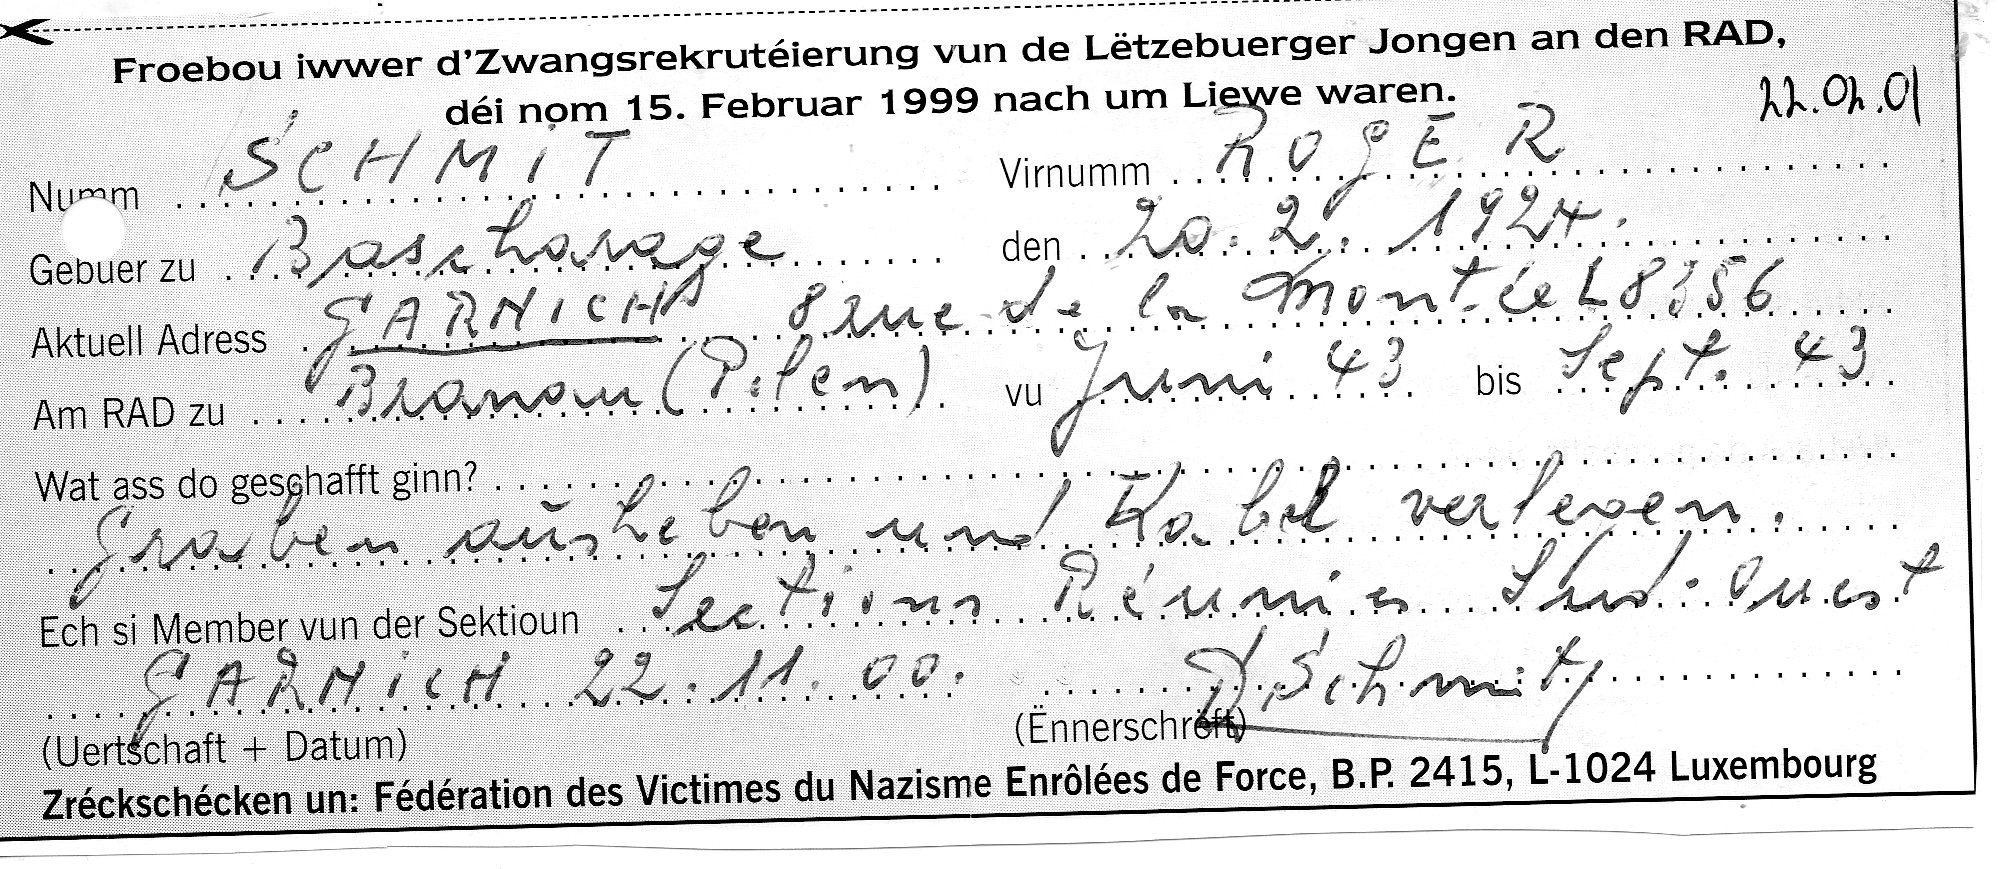 Froebou iwwer d'Zwangsrekrutéierung vun de Lëtzebuerger Jongen an den RAD,
déi nom 15. Februar 1999 nach um Liewe waren.
22.02.01
Numm SCHMIT Virnumm ROGER
Gebuer zu Bascharage den 20.2.1924.
Aktuell Adress GARNICH 8 rue de la Montée L 8356
Am RAD zu (Polen) vu Juni 43 bis Sept. 43
Wat ass do geschafft ginn?
Graben ausheben und Kabel verlegen.
Ech si Member vun der Sektioun Sections Réunies Sud-Ouest
GARNICH 22.11.00. R Schmit
(Uertschaft + Datum) (Ënnerschrëft)
Zréckschécken un: Fédération des Victimes du Nazisme Enrôlées de Force, B.P. 2415, L-1024 Luxembourg